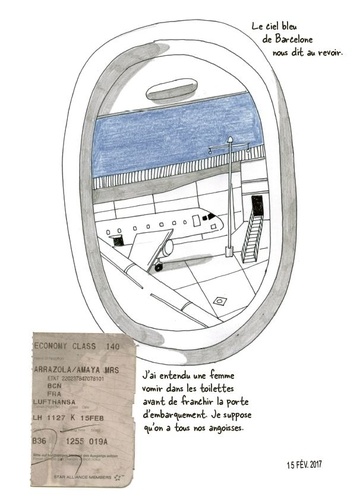 Le ciel bleu
de Barcelone
nous dit au revoir.
ECONOMY CLASS 140
ARRAZOLA/AMAYA MRS
BCN
FRA
LUFTHANSA
LH 1127 K 15FEB
B36 1255 019A
STAR ALLIANCE MEMBERS
J'ai entendu une femme
vomir dans les toilettes
avant de franchir la porte
d'embarquement. Je suppose
qu'on a tous nos angoisses.
15 FÉV. 2017